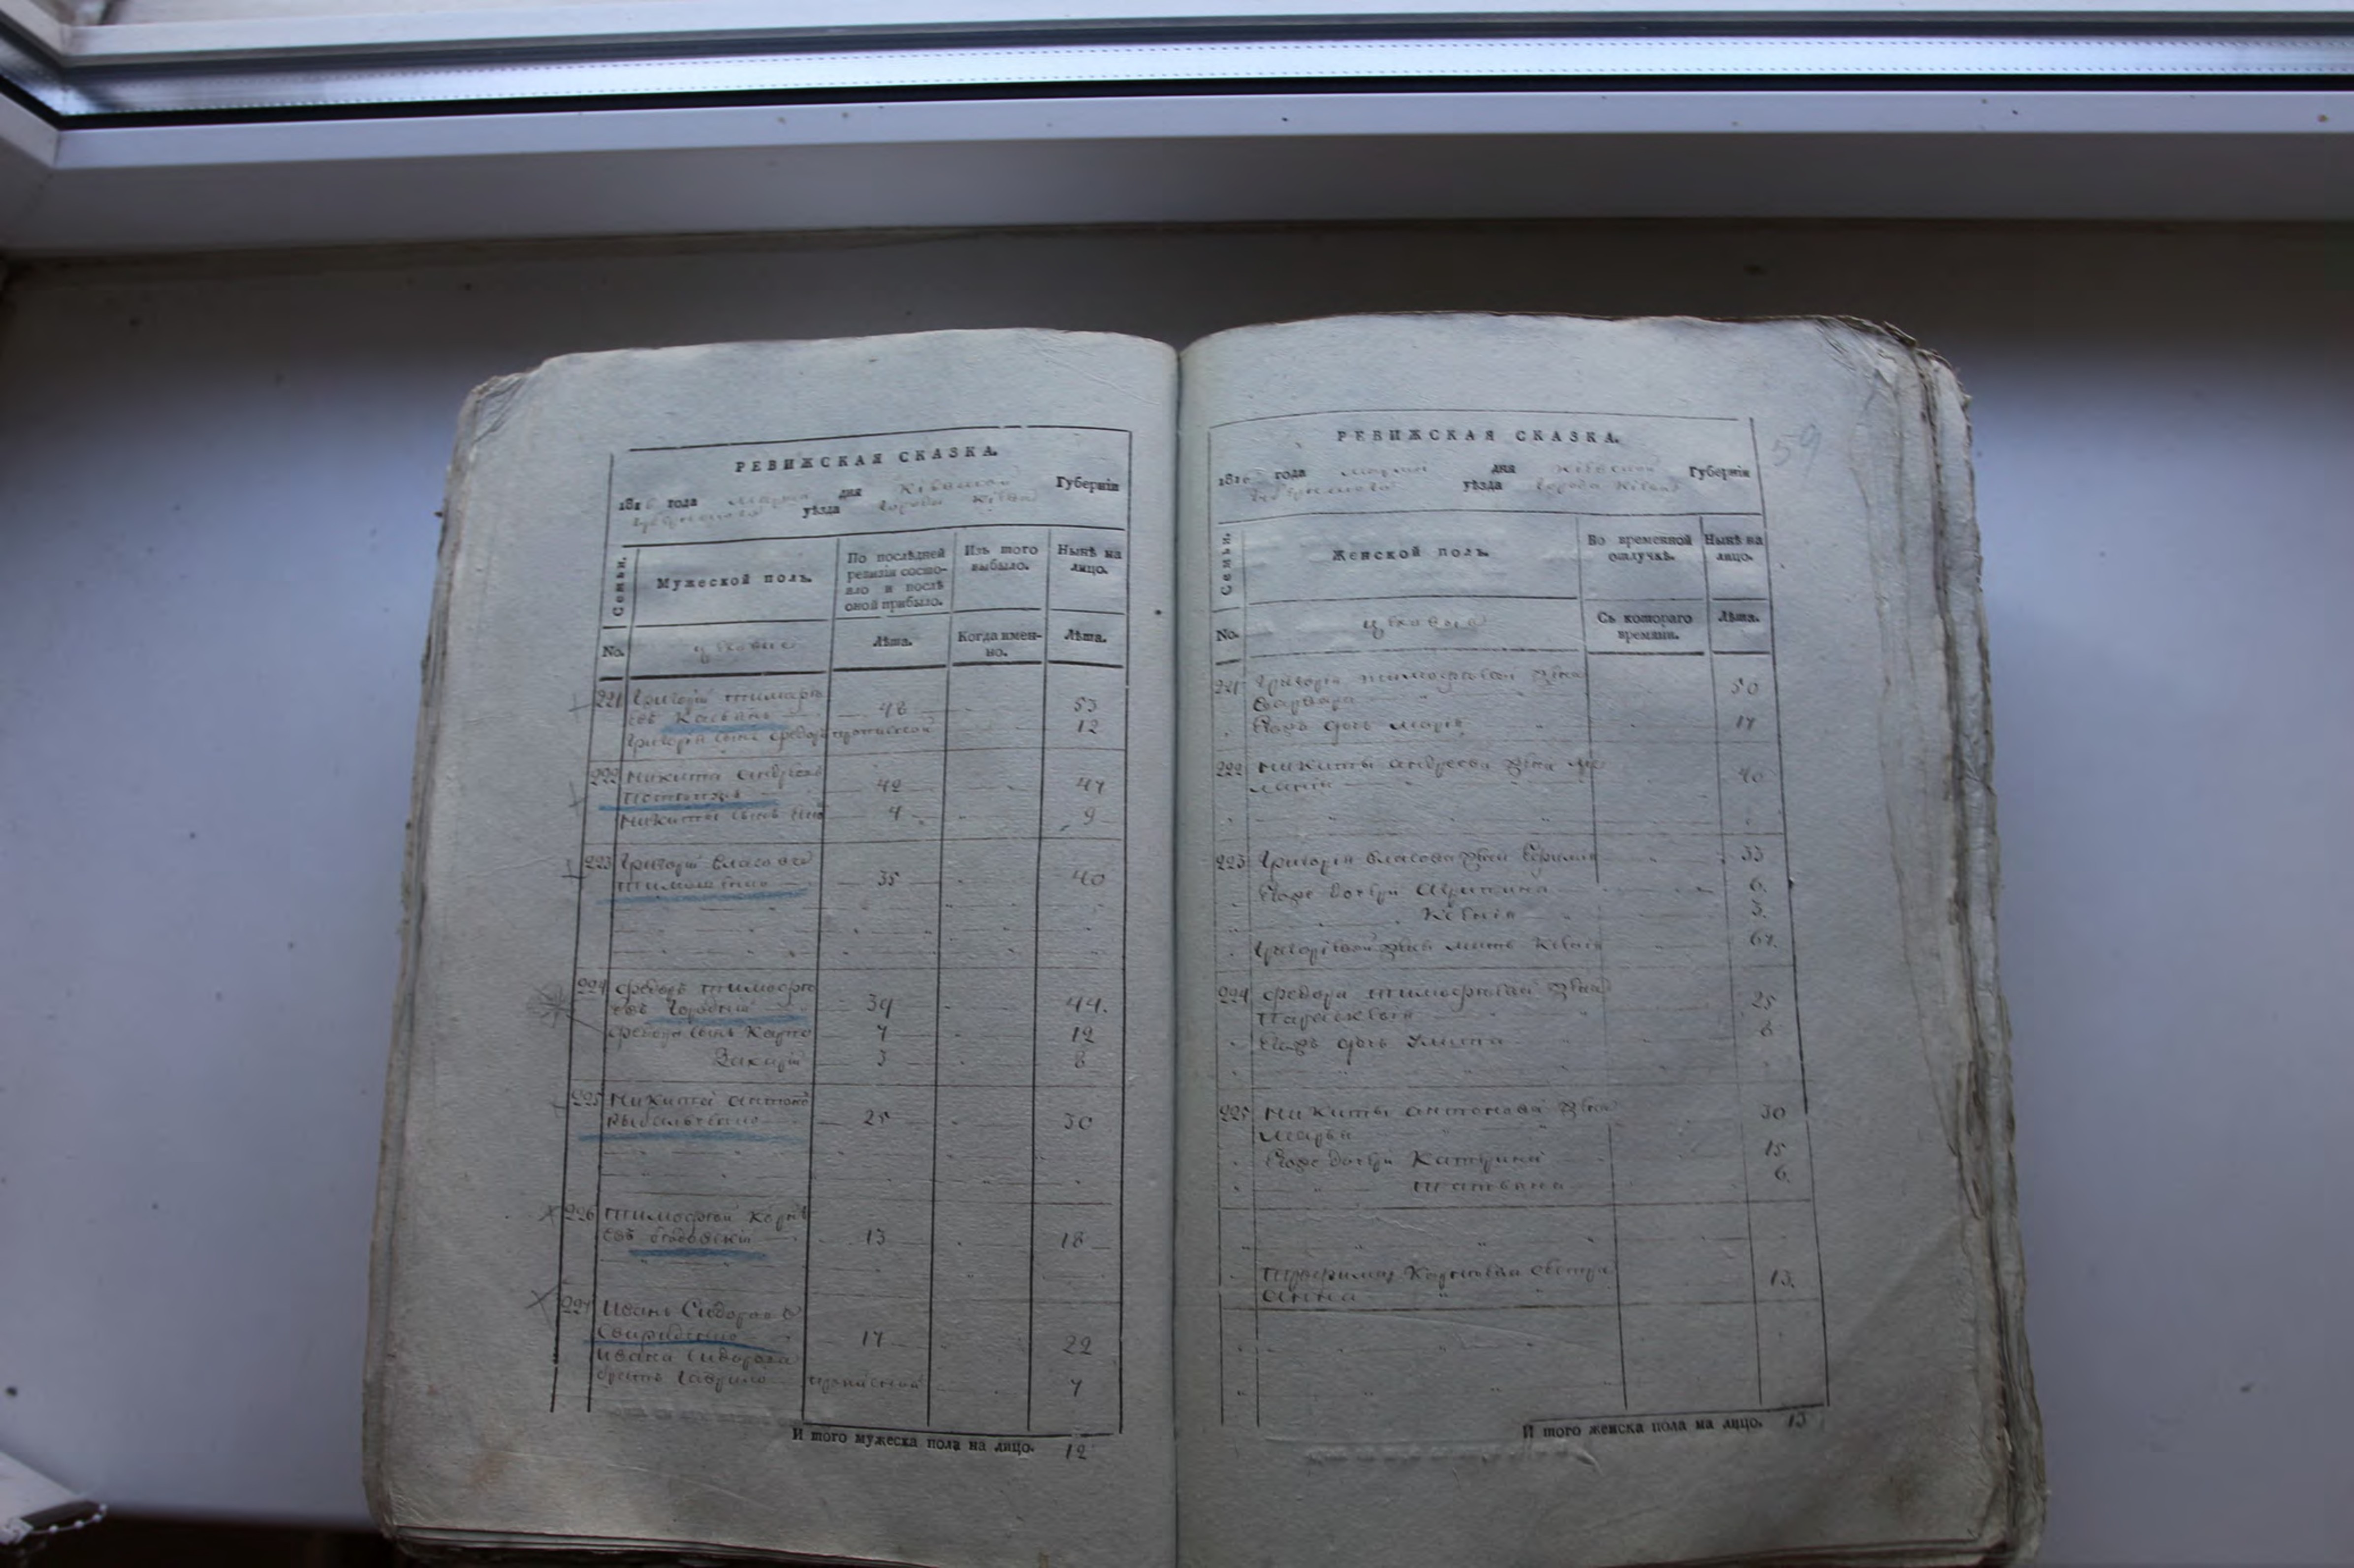 РЕВИЖСКАЯ СКАЗКА.
1816 года марта дня Кіевской Губерніи
Губернского уѣзда города Кіева
Семьи.
Мужеской полъ.
По послѣдней ревизіи состояло и послѣ оной прибыло.
Изъ того выбыло.
Нынѣ на лицо.
No.
Лѣта.
Когда именно.
Лѣта.
221 Григорій Тимофѣ
евъ 48 53
Григорія сынъ Федоръ прописной 12
222 Никита Андреевъ
42 47
Никиты сынъ 4 9
223 Григорій Власовъ
Тимошенко 35 40
224 Федоръ Тимофѣ
евъ Городній 39 44.
Федора сынъ Карпо 7 12
Захарій 3 8
225 Никита Антоновъ
Рыбальченко 25 30
226 Тимофей
евъ 13 18
227 Иванъ Сидоровъ
Свириденко 17 22
Ивана Сидорова
братъ Гаврило прописной 7
И того мужеска пола на лицо. 12
59
РЕВИЖСКАЯ СКАЗКА.
1816 года марта дня Кіевской Губерніи
Губернского уѣзда города Кіева
Семьи.
Женской полъ.
Во временной отлучкѣ.
Нынѣ на лицо.
No.
Съ котораго времяни.
Лѣта.
221 Григорія Тимофѣева жена
Варвара 50
Ево дочь Марія 17
222 Никиты Андреева жена Ме
ланія 40
223 Григорія Власова жена 33
Ево дочери Агрипина 6.
Ксенія 3.
мать Ксенія 67.
224 Федора Тимофѣева жена
Параскевія 25
дочь Улияна 8
225 Никиты Антонова жена
Марья 30
Ево дочери Катерина 15
Татьяна 6.
сестра
Анна 13.
И того женска пола на лицо. 13